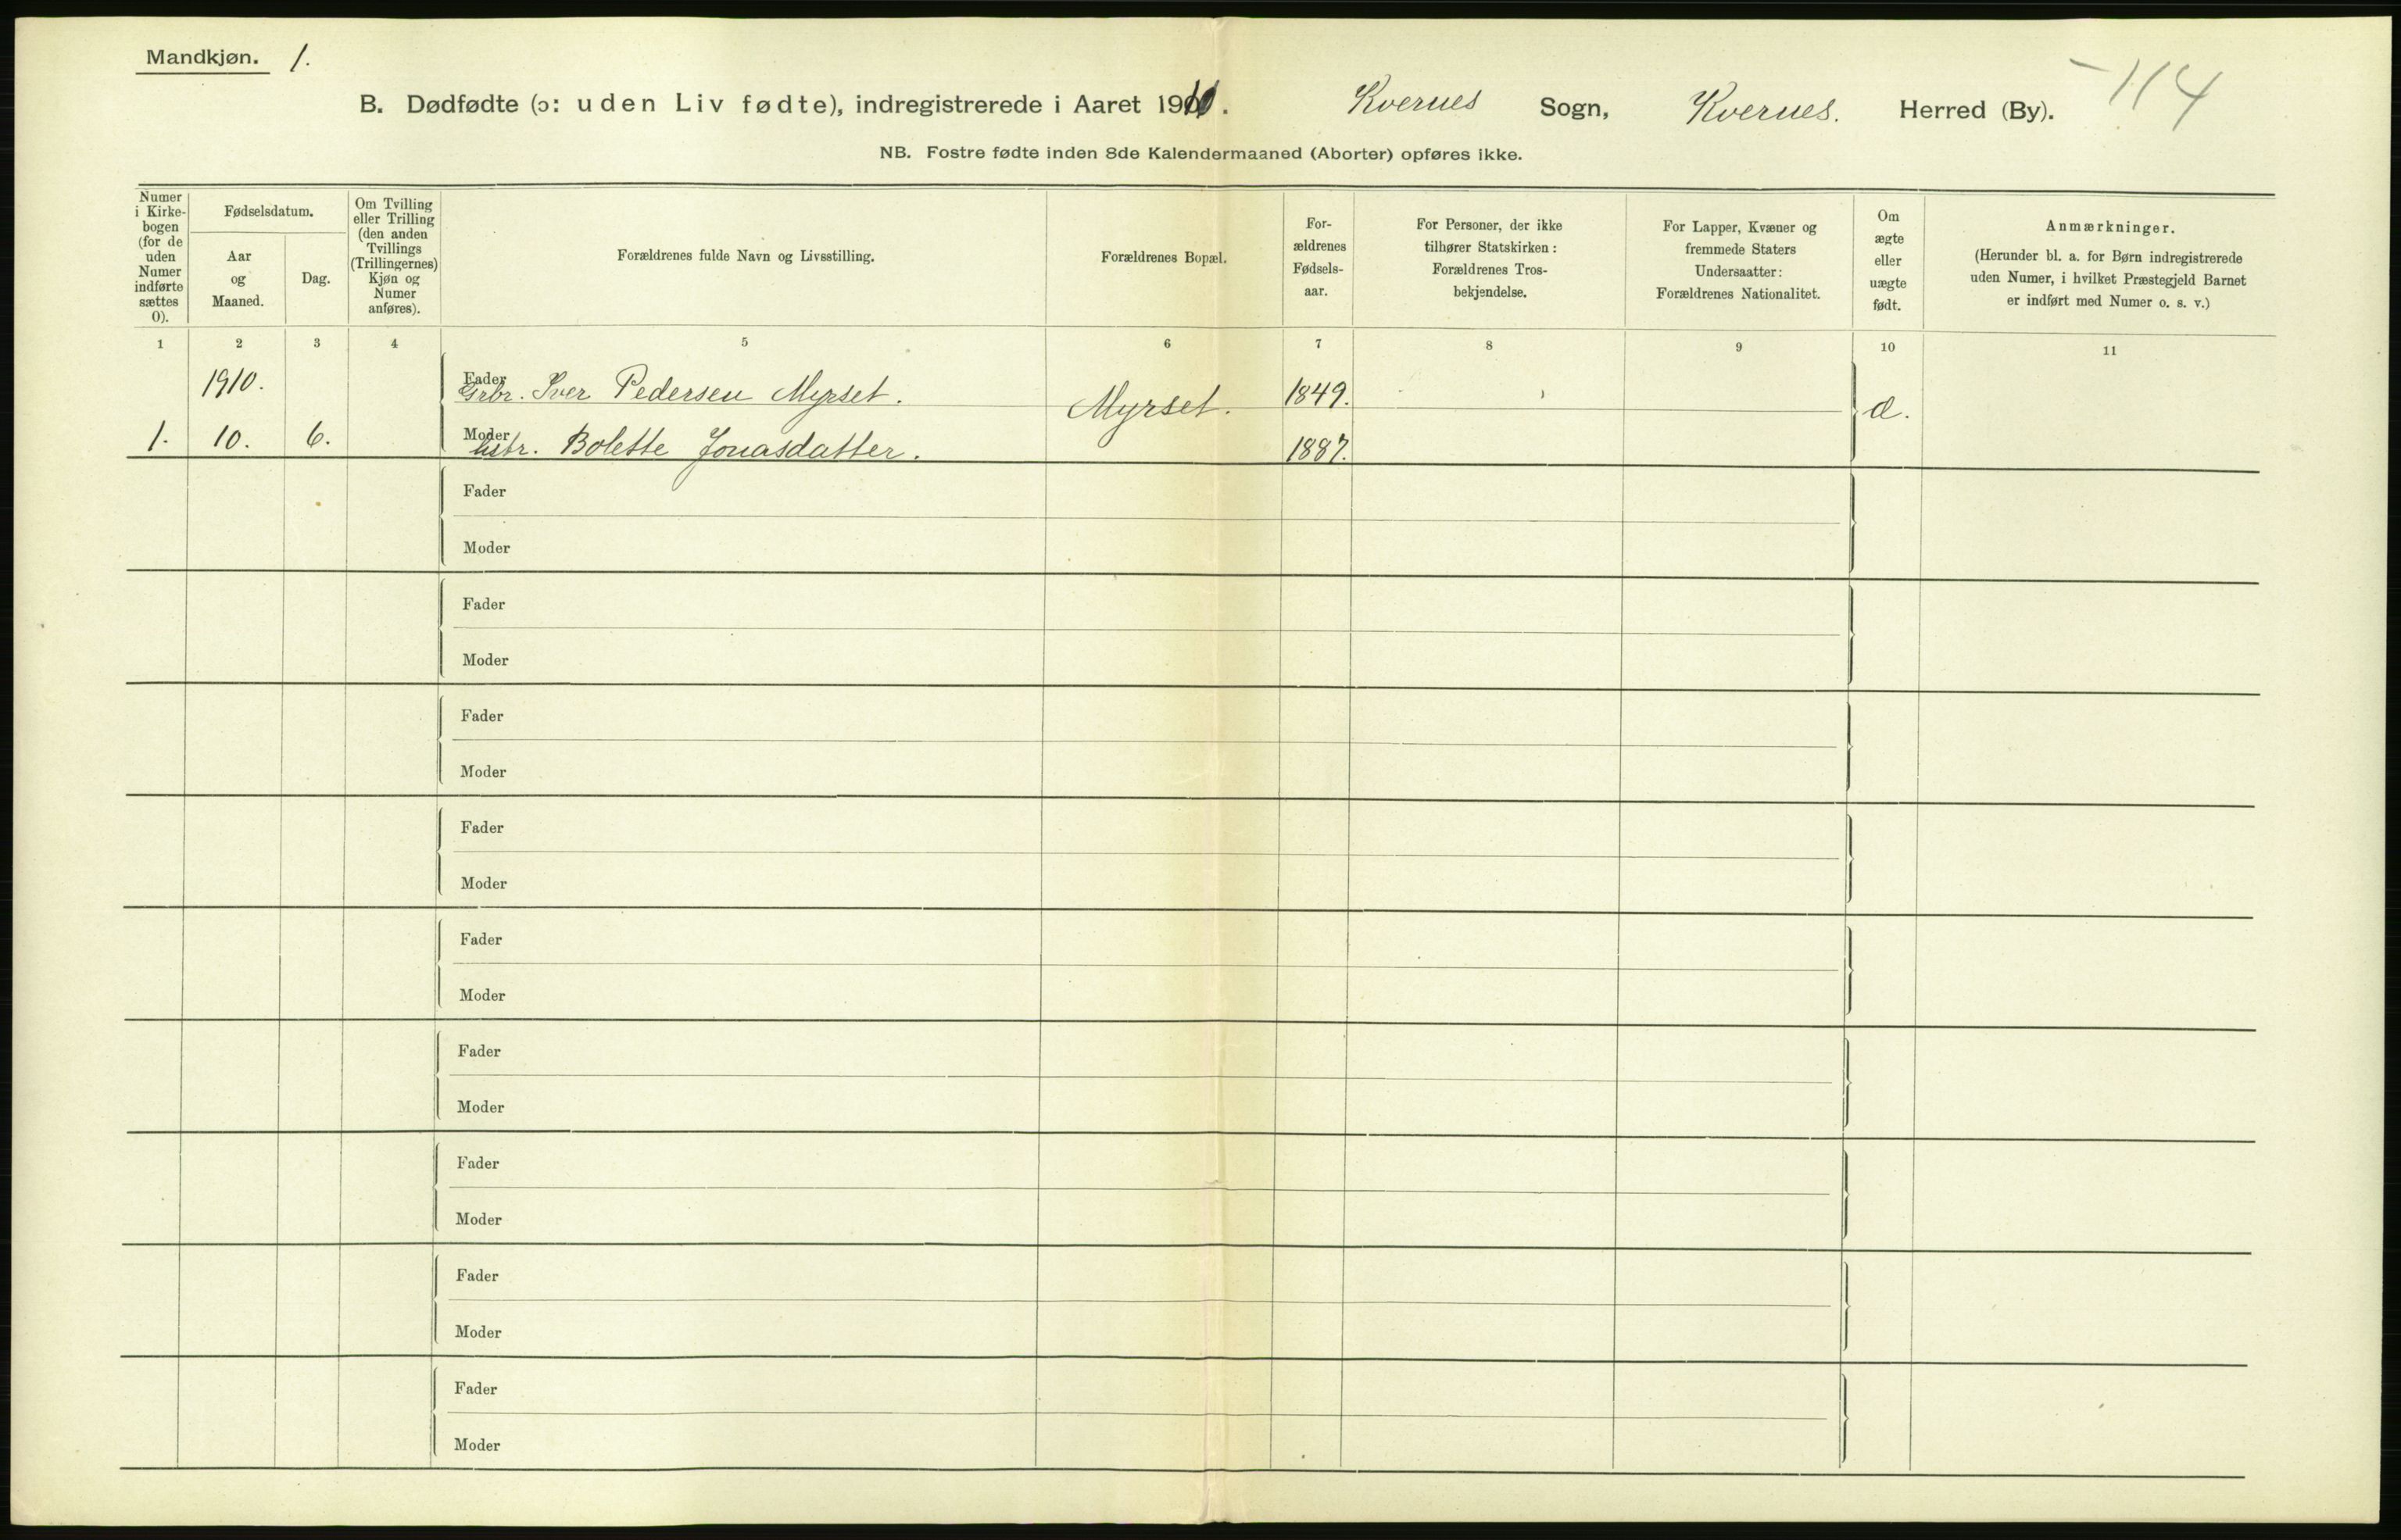 Mandkjøn. 1.
B. Dødfødte (ɔ: uden Liv fødte), indregistrerede i Aaret 1910. Kvernes Sogn, Kvernes. Herred (By). 114
NB. Fostre fødte inden 8de Kalendermaaned (Aborter) opføres ikke.
Numer i Kirke-bogen (for de uden Numer indførte sættes 0).
Fødselsdatum.
Aar og Maaned.
Dag.
Om Tvilling eller Trilling (den anden Tvillings (Trillingernes) Kjøn og Numer anføres).
Forældrenes fulde Navn og Livsstilling.
Forældrenes Bopæl.
For-ældrenes Fødsels-aar.
For Personer, der ikke tilhører Statskirken: Forældrenes Tros-bekjendelse.
For Lapper, Kvæner og fremmede Staters Undersaatter: Forældrenes Nationalitet.
Om ægte eller uægte født.
Anmærkninger.
(Herunder bl. a. for Børn indregistrerede uden Numer, i hvilket Præstegjeld Barnet er indført med Numer o. s. v.)
1 2 3 4 5 6 7 8 9 10 11
1910. Fader Grbr. Iver Pedersen Myrset. Myrset. 1849.
1. 10. 6. Moder Hustr. Bolette Jonasdatter. 1887.
Fader
Moder
Fader
Moder
Fader
Moder
Fader
Moder
Fader
Moder
Fader
Moder
Fader
Moder
Fader
Moder
Fader
Moder